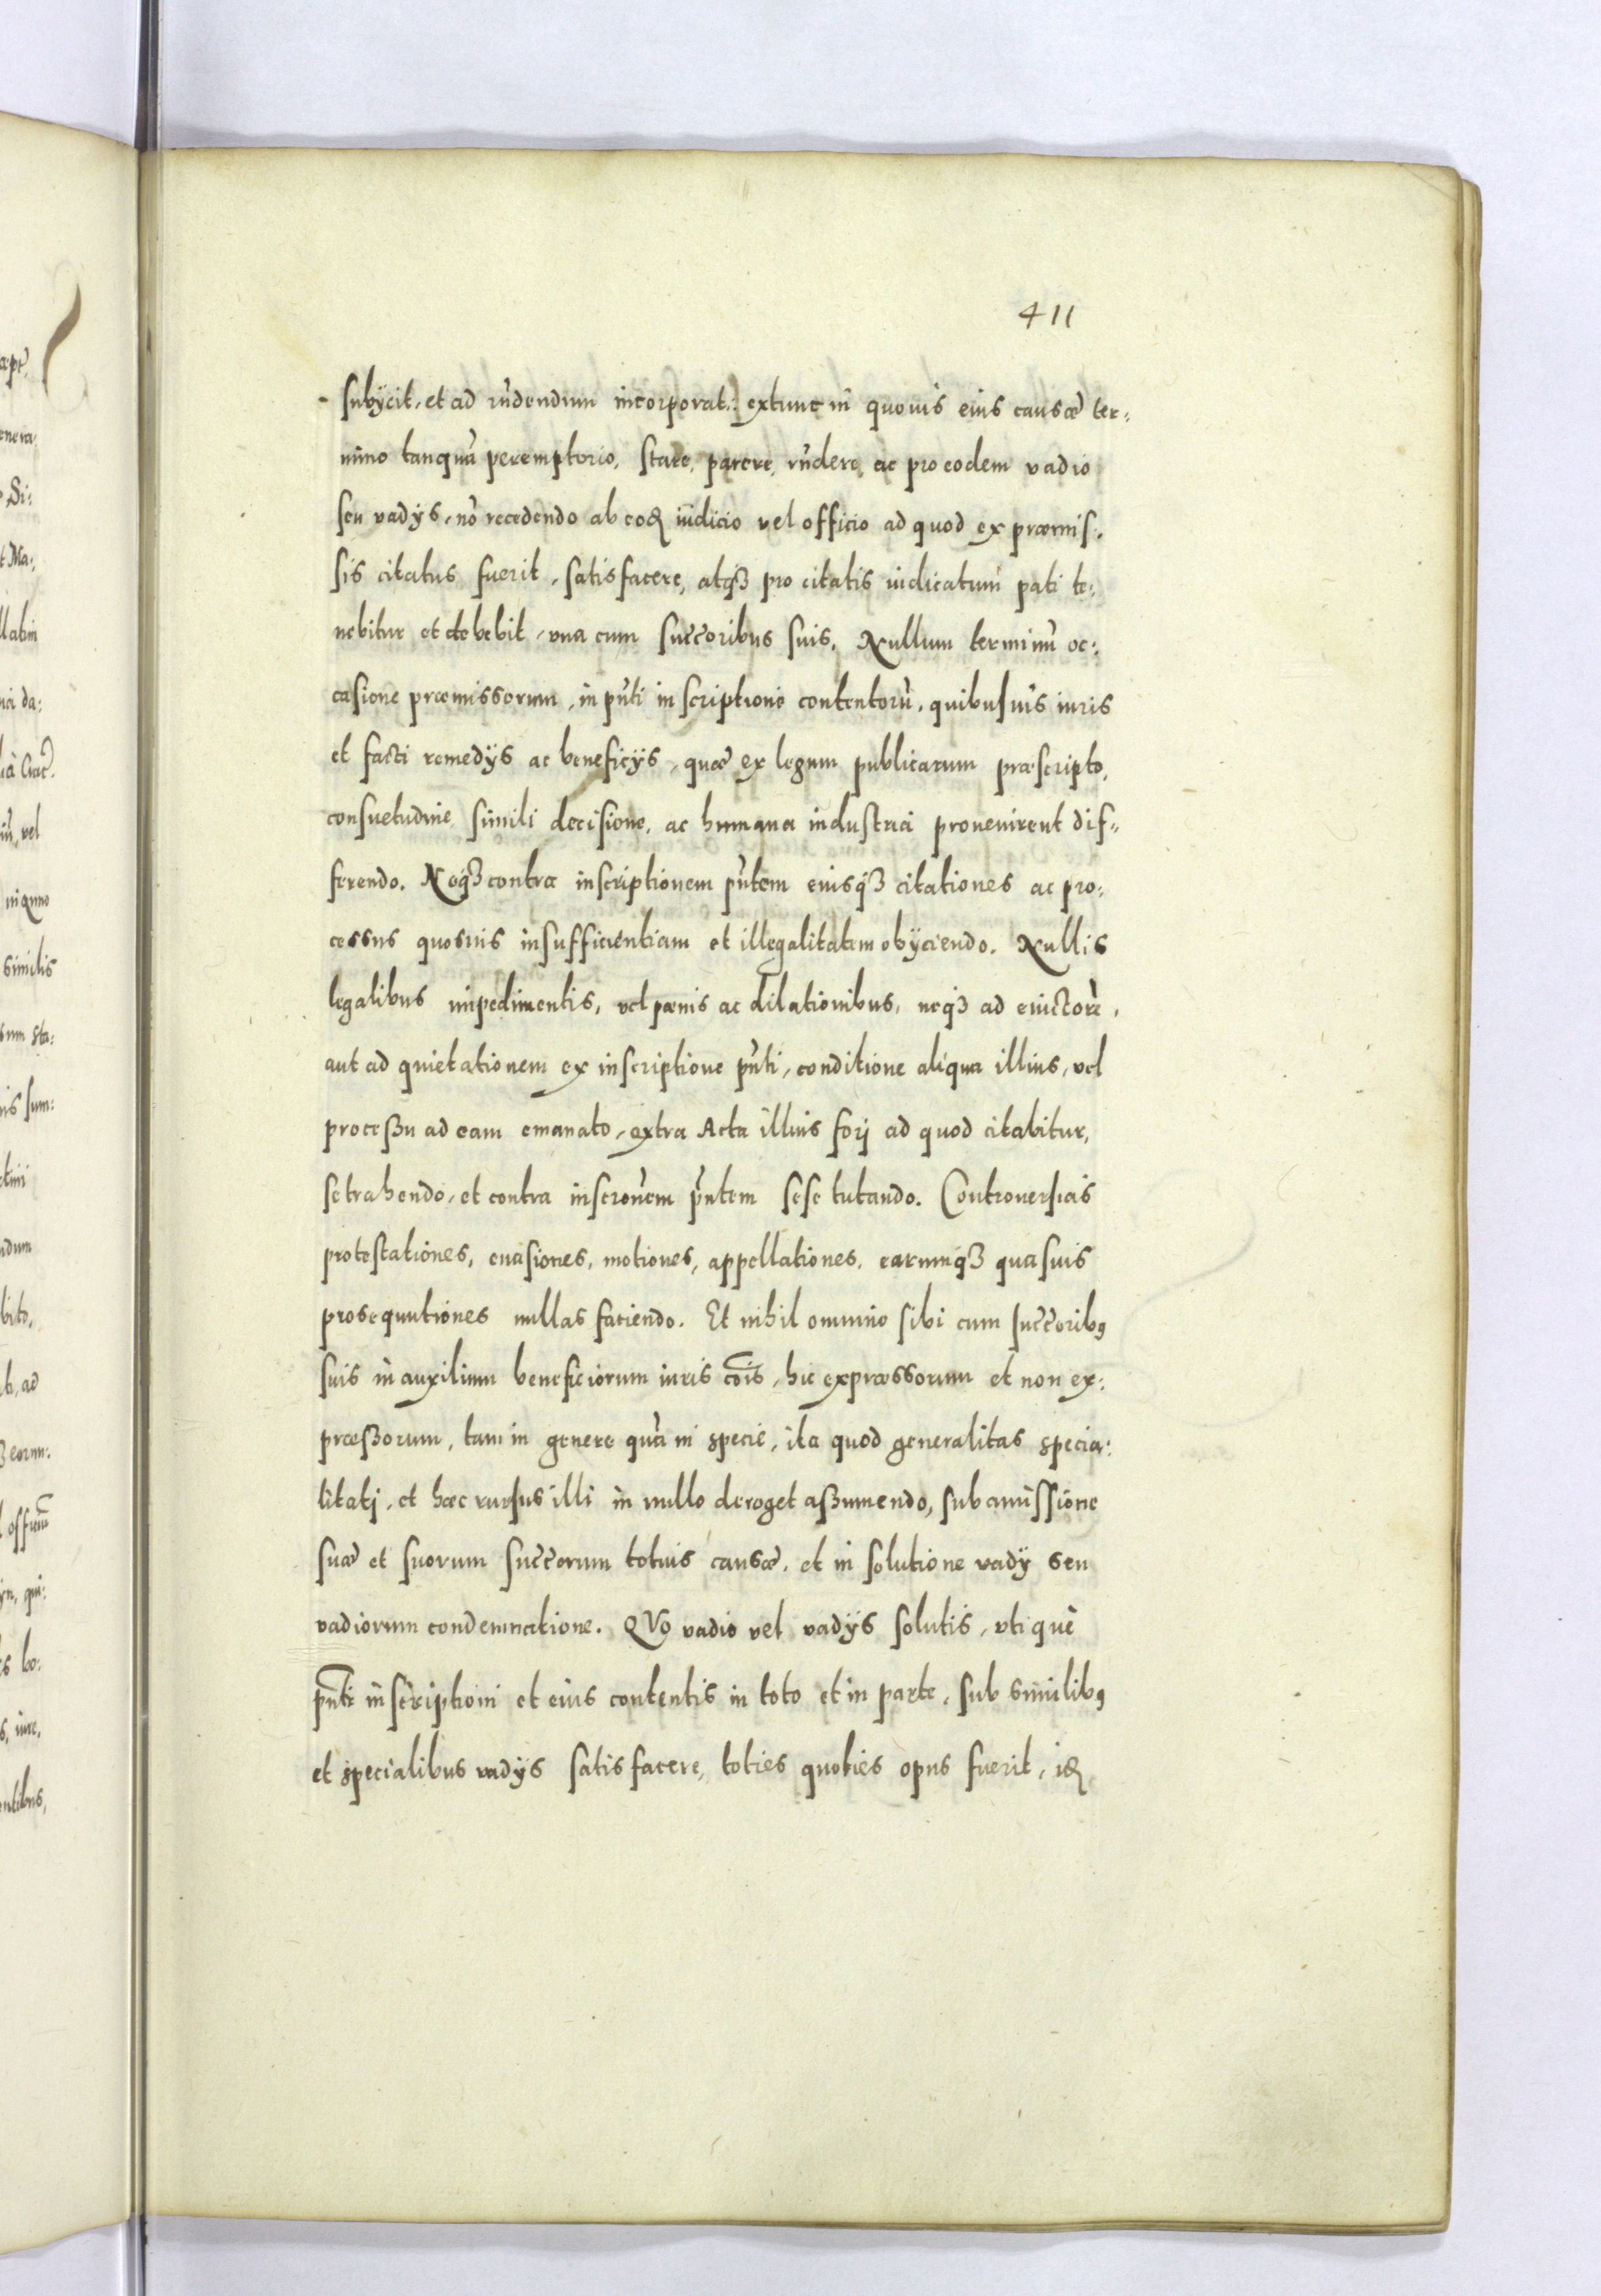 411
subÿcit, et ad rn̄dendum incorporat.:) extunc in quouis eius causæ ter:
mino tanquā peremptorio, stare, parere, rn̄dere, ac pro eodem vadio
seu vadÿs, nō recedendo ab eod iudicio vel officio ad quod ex præmis:
sis citatus fuerit, satisfacere, atqȝ pro citatis iudicatum pati te:
nebitur et debebit, vna cum succ̄oribus suis. Nullum terminū oc:
casione præmissorum, in pn̄ti inscriptione contentorū, quibusuis iuris
et facti remedÿs ac beneficÿs, quæ ex legum publicarum præscripto,
consuetudine, simili decisione, ac humana industria prouenirent dif:
ferendo. Neqȝ contra inscriptionem pn̄tem eiusqȝ citationes ac pro:
cessus quosuis insufficientiam et illegalitatem obÿciendo. Nullis
legalibus impedimentis, vel pænis ac dilationibus, neqȝ ad euictorē,
aut ad quietationem ex inscriptione pn̄ti, conditione aliqua illius, vel
proceßu ad eam emanato, extra Acta illius forj ad quod citabitur,
se trahendo, et contra inscrōnem pn̄tem sese tutando. Controuersias
protestationes, euasiones, motiones, appellationes, earumqȝ quasuis
prosequutiones nullas faciendo. Et nihil omnino sibi cum succ̄oribꝯ
suis in auxilium beneficiorum iuris cōis, hic expræssorum et non ex:
præßorum, tam in genere quā in specie, ita quod generalitas specia:
litatj, et hæc rursus illi in nullo deroget aßumendo, sub amissione
suæ et suorum succ̄orum totius causæ, et in solutione vadÿ seu
vadiorum condemnatione. QVo vadio vel vadÿs solutis, vtiquè
pn̄ti inscriptioni et eius contentis in toto et in parte, sub similibꝯ
et specialibus vadÿs satisfacere, toties quoties opus fuerit, id